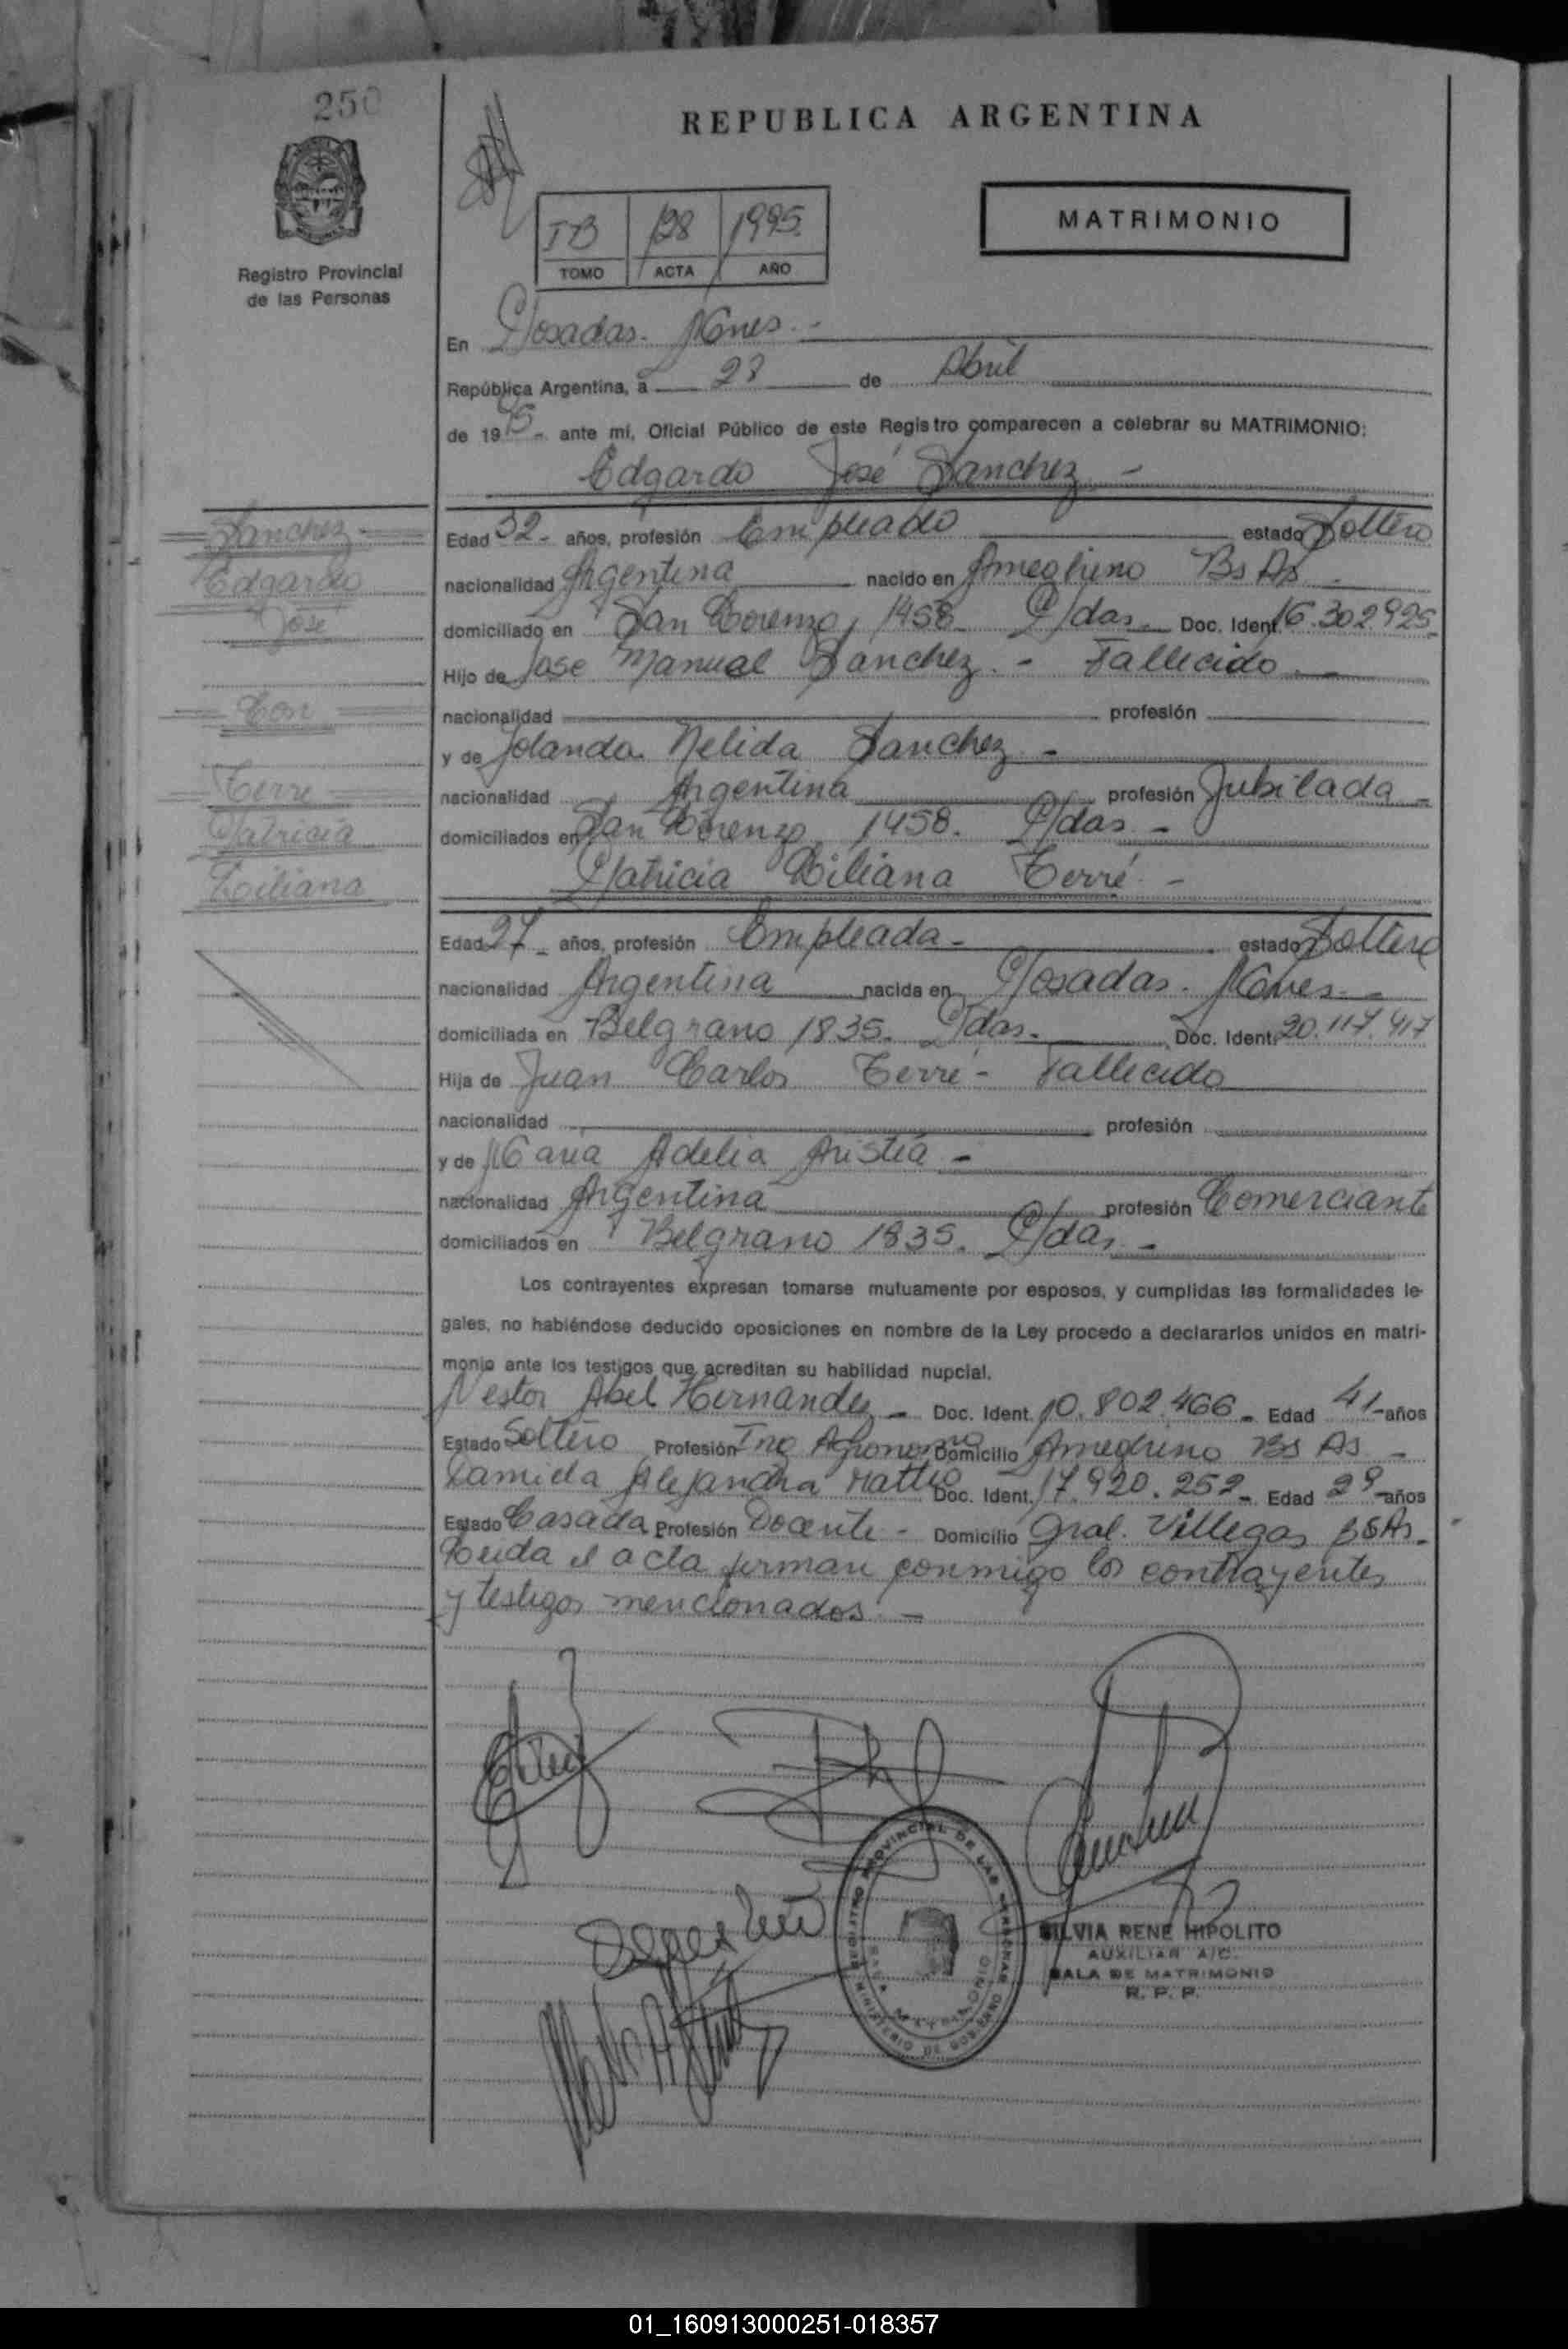 250
REPUBLICA ARGENTINA
Registro Provincial
de las Personas
TOMO IB ACTA 128 AÑO 1995
MATRIMONIO
En Posadas. Mnes.-
República Argentina, a 28 de Abril
de 1995- ante mí, Oficial Público de este Registro comparecen a celebrar su MATRIMONIO:
Edgardo José Sanchez -
Sanchez
Edgardo
José
Con
Terre
Patricia
Liliana
Edad 32- años, profesión Empleado estado Soltero
nacionalidad Argentina nacido en Ameghino Bs As -
domiciliado en San Lorenzo 1458 P/das. Doc. Ident. 16.302.925-
Hijo de Jose Manuel Sanchez.- Fallecido
nacionalidad profesión
y de Yolanda Nelida Sanchez -
nacionalidad Argentina profesión Jubilada -
domiciliados en San Lorenzo 1458. P/das -
Patricia Liliana Terré -
Edad 27- años, profesión Empleada- estado Soltera
nacionalidad Argentina nacida en Posadas. Mnes-
domiciliada en Belgrano 1835. P/das. Doc. Ident. 20.117.417
Hija de Juan Carlos Terré- Fallecido
nacionalidad profesión
y de Maria Adelia Aristia -
nacionalidad Argentina profesión Comerciante
domiciliados en Belgrano 1835. P/das -
Los contrayentes expresan tomarse mutuamente por esposos, y cumplidas las formalidades le-
gales, no habiéndose deducido oposiciones en nombre de la Ley procedo a declararlos unidos en matri-
monio ante los testigos que acreditan su habilidad nupcial.
Nestor Abel Hernandez - Doc. Ident. 10.802.466- Edad 41- años
Estado Soltero Profesión Ing Agronomo Domicilio Ameghino Bs As -
Daniela Alejandra Doc. Ident. 17.920.252- Edad 29- años
Estado Casada Profesión Docente - Domicilio Gral. Villegas BsAs-
Leida el acta firman conmigo los contrayentes
y testigos mencionados. -
REGISTRO PROVINCIAL DE LAS PERSONAS
SALA MATRIMONIO
MINISTERIO DE GOBIERNO
SILVIA RENE HIPOLITO
AUXILIAR A/C.
SALA DE MATRIMONIO
R. P. P.
01_160913000251-018357